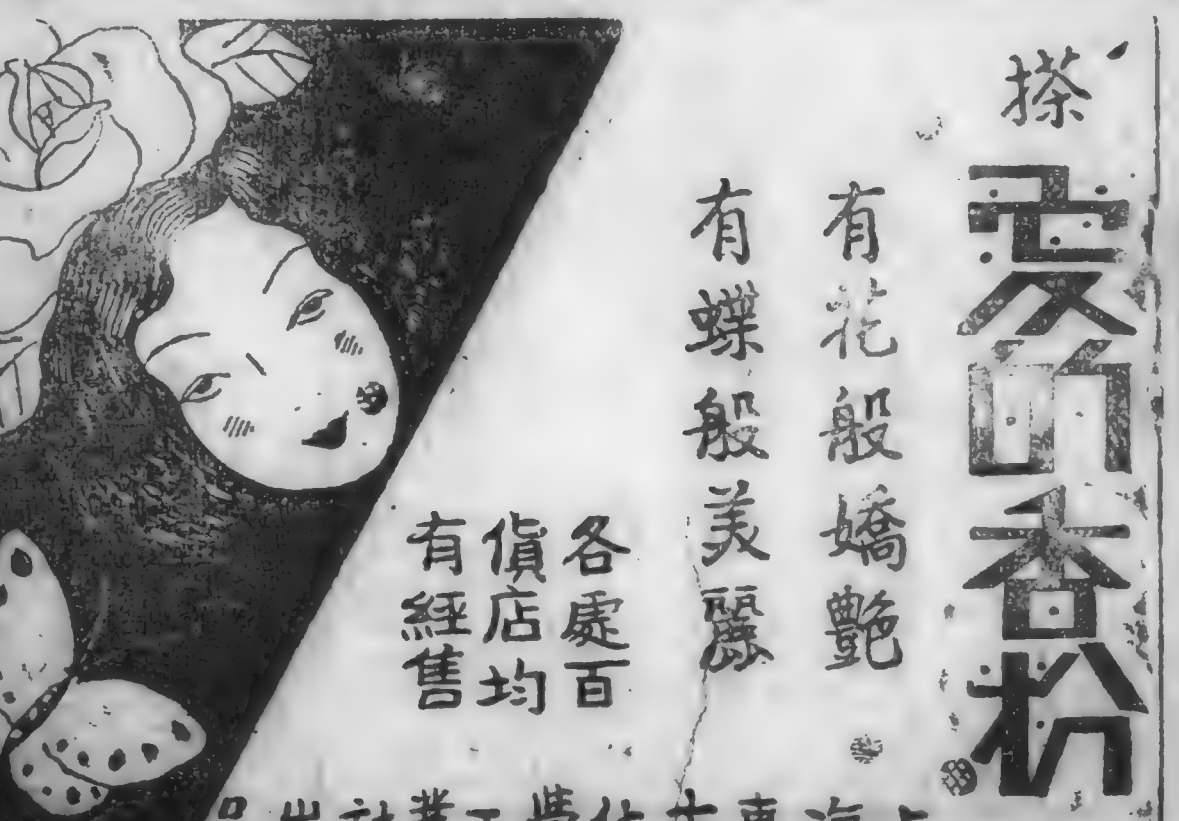 搽愛的香粉
有花般嬌艷
有蝶般美麗
各處百
貨店均
有經售
上海東方化學工業社出品